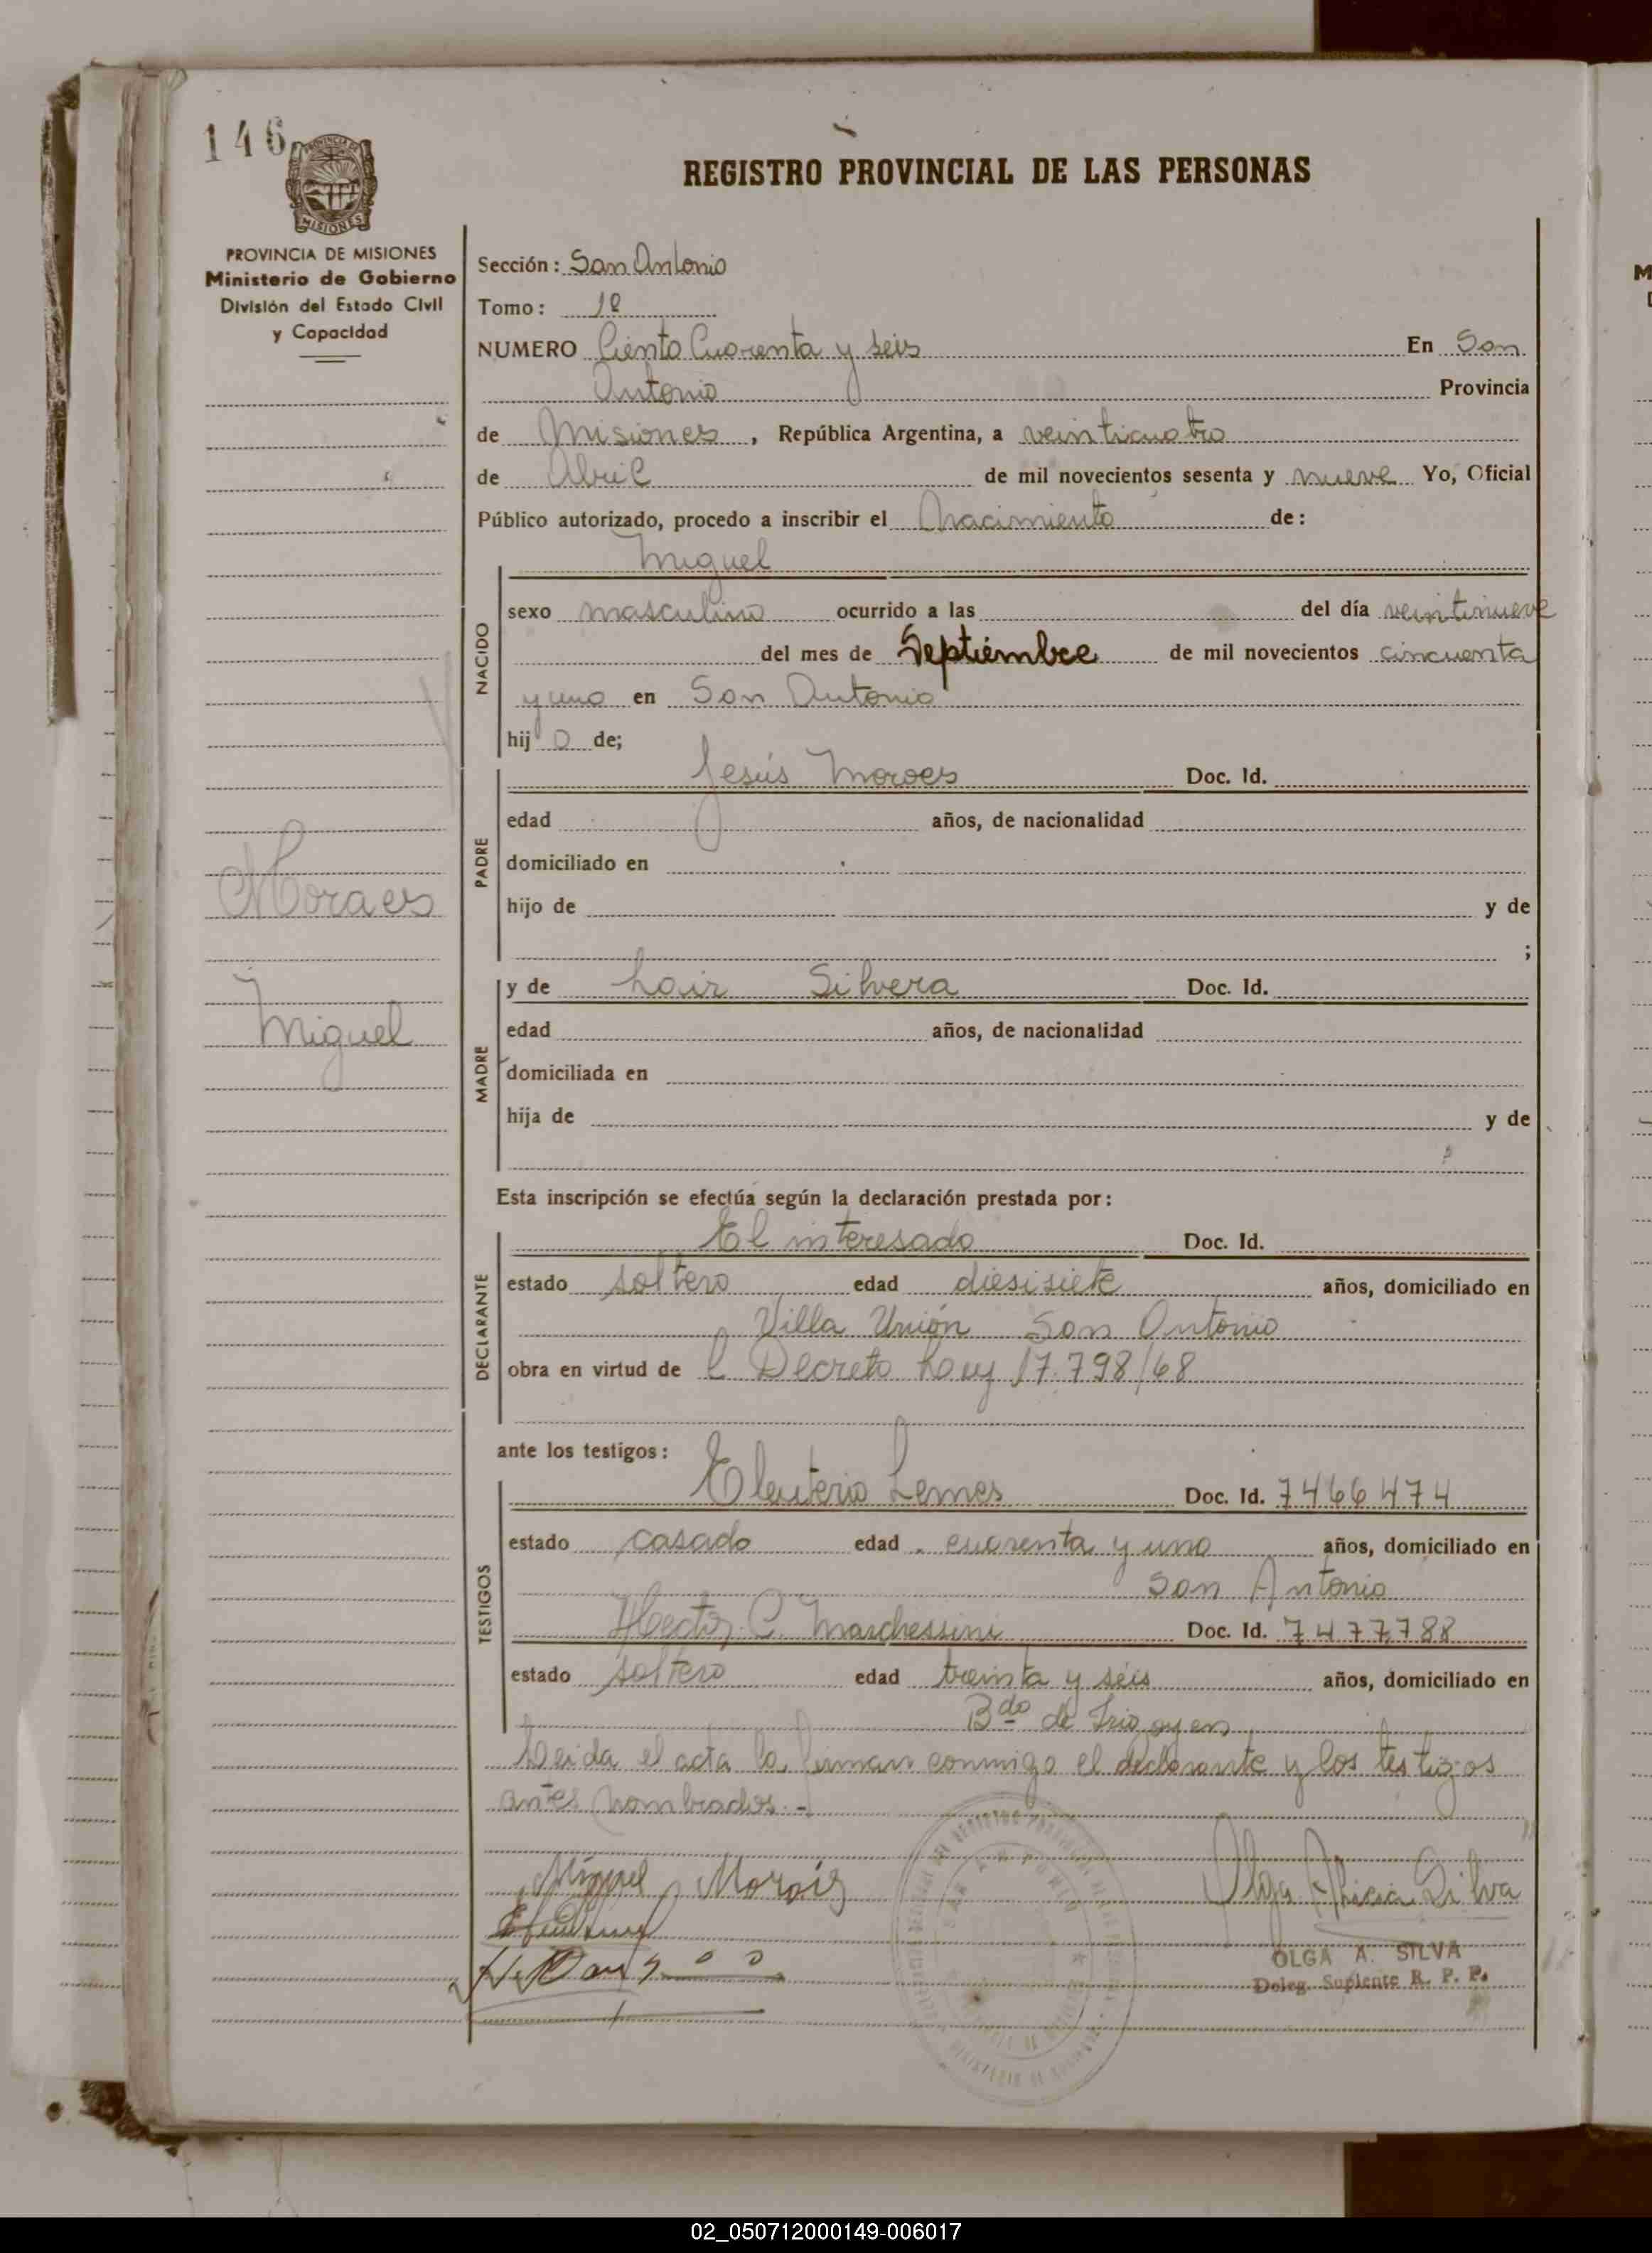 146
PROVINCIA DE
MISIONES
PROVINCIA DE MISIONES
Ministerio de Gobierno
División del Estado Civil
y Capacidad
Moraes
Miguel
REGISTRO PROVINCIAL DE LAS PERSONAS
Sección: San Antonio
Tomo: 18
NUMERO Ciento Cuarenta y seis En San
Antonio Provincia
de Misiones, República Argentina, a veinticuatro
de Abril de mil novecientos sesenta y nueve Yo, Oficial
Público autorizado, procedo a inscribir el nacimiento de:
Miguel
NACIDO
sexo masculino ocurrido a las del día veintinueve
del mes de Septiembre de mil novecientos cincuenta
y uno en San Antonio
hij o de;
PADRE
Jesús Moraes Doc. Id.
edad años, de nacionalidad
domiciliado en
hijo de y de
;
MADRE
y de Lair Silvera Doc. Id.
edad años, de nacionalidad
domiciliada en
hija de y de
Esta inscripción se efectúa según la declaración prestada por:
DECLARANTE
El interesado Doc. Id.
estado soltero edad diesisiete años, domiciliado en
Villa Unión San Antonio
obra en virtud de l Decreto Ley 17.798/68
ante los testigos:
TESTIGOS
Eleuterio Lemes Doc. Id. 7466474
estado casado edad cuarenta y uno años, domiciliado en
San Antonio
Hector C. Marchessini Doc. Id. 7477788
estado soltero edad treinta y séis años, domiciliado en
Bdo de Irigoyen
Leida el acta la firman conmigo el declarante y los testigos
antes nombrados.-
Miguel Moraiz
Olga Alicia Silva
OLGA A. SILVA
Deleg. Suplente R. P. P.
02_050712000149-006017